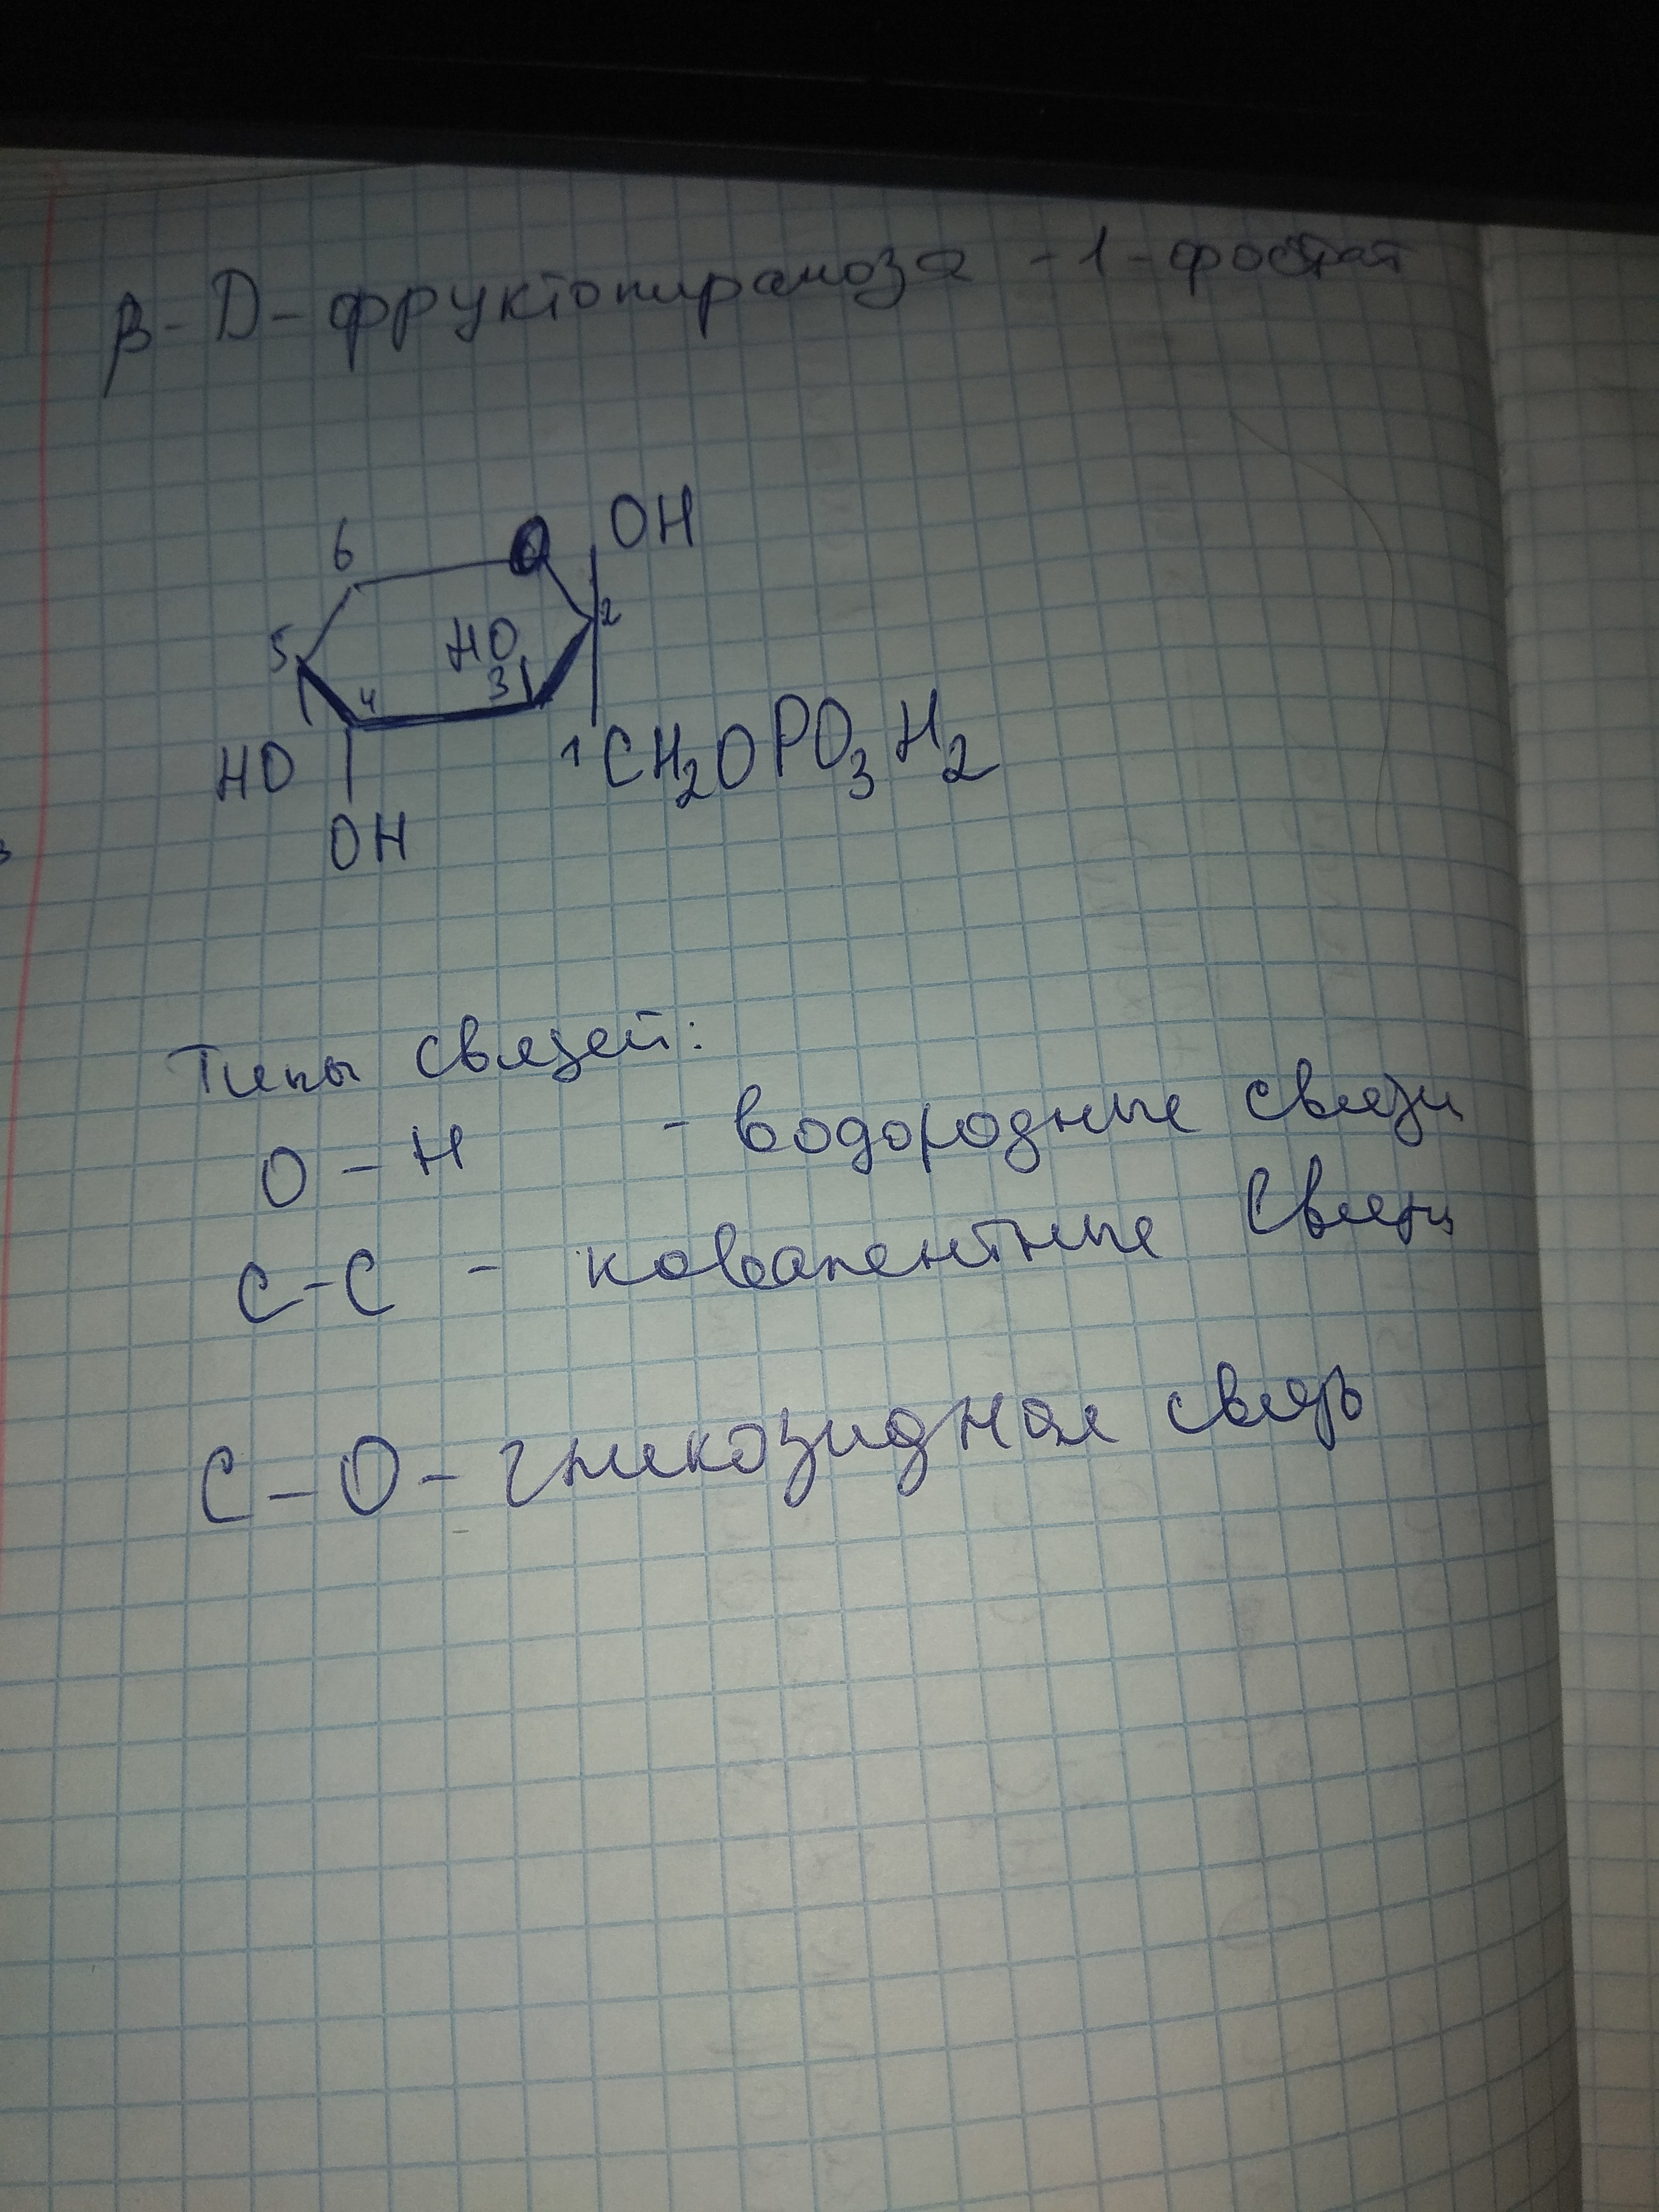 β-D-фруктопираноза-1-фосфат
6 O OH
5 HO 2
3
4
HO 1CH2OPO3H2
OH
Типы связей:
O-H - водородные связи
C-C - ковалентные связи
C-O- гликозидная связь